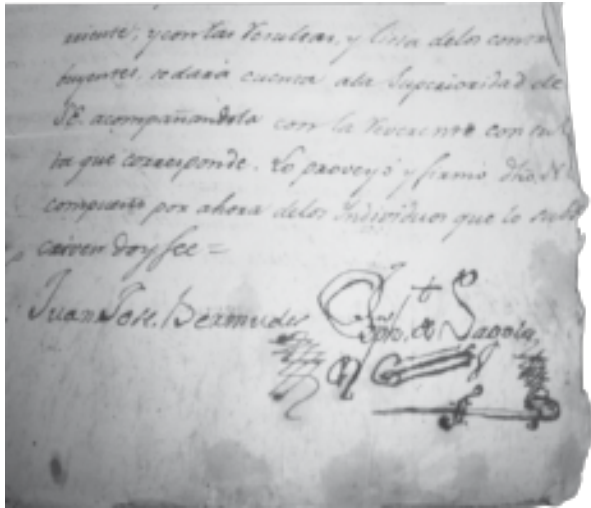 niente, y con las resultas, y lista delos contri
buyentes, se dará cuenta ala Superioridad de
S.E. acompañandola con la reverente consul
ta que corresponde. Lo proveyó y firmó dho. N.
compuesto por ahora delos Individuos que lo subs
criven doy fee =
Juan Jose. Bermudes
Joph. de Sagola